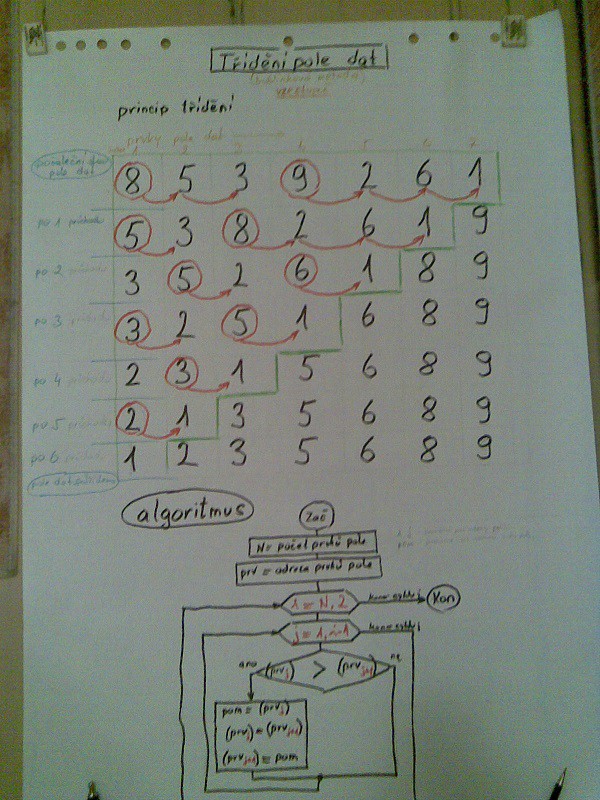 Třídění pole dat
princip třídění
prvky pole dat
1 2 3 4 5 6 7
pole dat
8 5 3 9 2 6 1
po 1 průchodu
5 3 8 2 6 1 9
po 2 průchodu
3 5 2 6 1 8 9
po 3 průchodu
3 2 5 1 6 8 9
po 4 průchodu
2 3 1 5 6 8 9
po 5 průchodu
2 1 3 5 6 8 9
po 6 průchodu
1 2 3 5 6 8 9
algoritmus
Zač
N = počet prvků pole
prv = adresa prvků pole
i = N, 2
konec cyklu i
Kon
j = 1, i-1
konec cyklu j
ano
(prvj) > (prvj+1)
ne
pom = (prvj)
(prvj) = (prvj+1)
(prvj+1) = pom